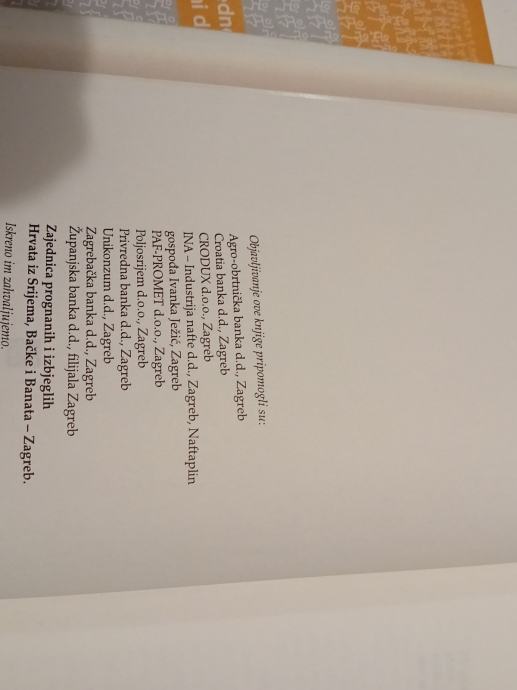 Objavljivanje ove knjige pripomogli su:
Agro-obrtnička banka d.d., Zagreb
Croatia banka d.d., Zagreb
CRODUX d.o.o., Zagreb
INA – Industrija nafte d.d., Zagreb, Naftaplin
gospođa Ivanka Ježić, Zagreb
PAF-PROMET d.o.o., Zagreb
Poljosrijem d.o.o., Zagreb
Privredna banka d.d., Zagreb
Unikonzum d.d., Zagreb
Zagrebačka banka d.d., Zagreb
Županjska banka d.d., filijala Zagreb
Zajednica prognanih i izbjeglih
Hrvata iz Srijema, Bačke i Banata – Zagreb.
Iskreno im zahvaljujemo.